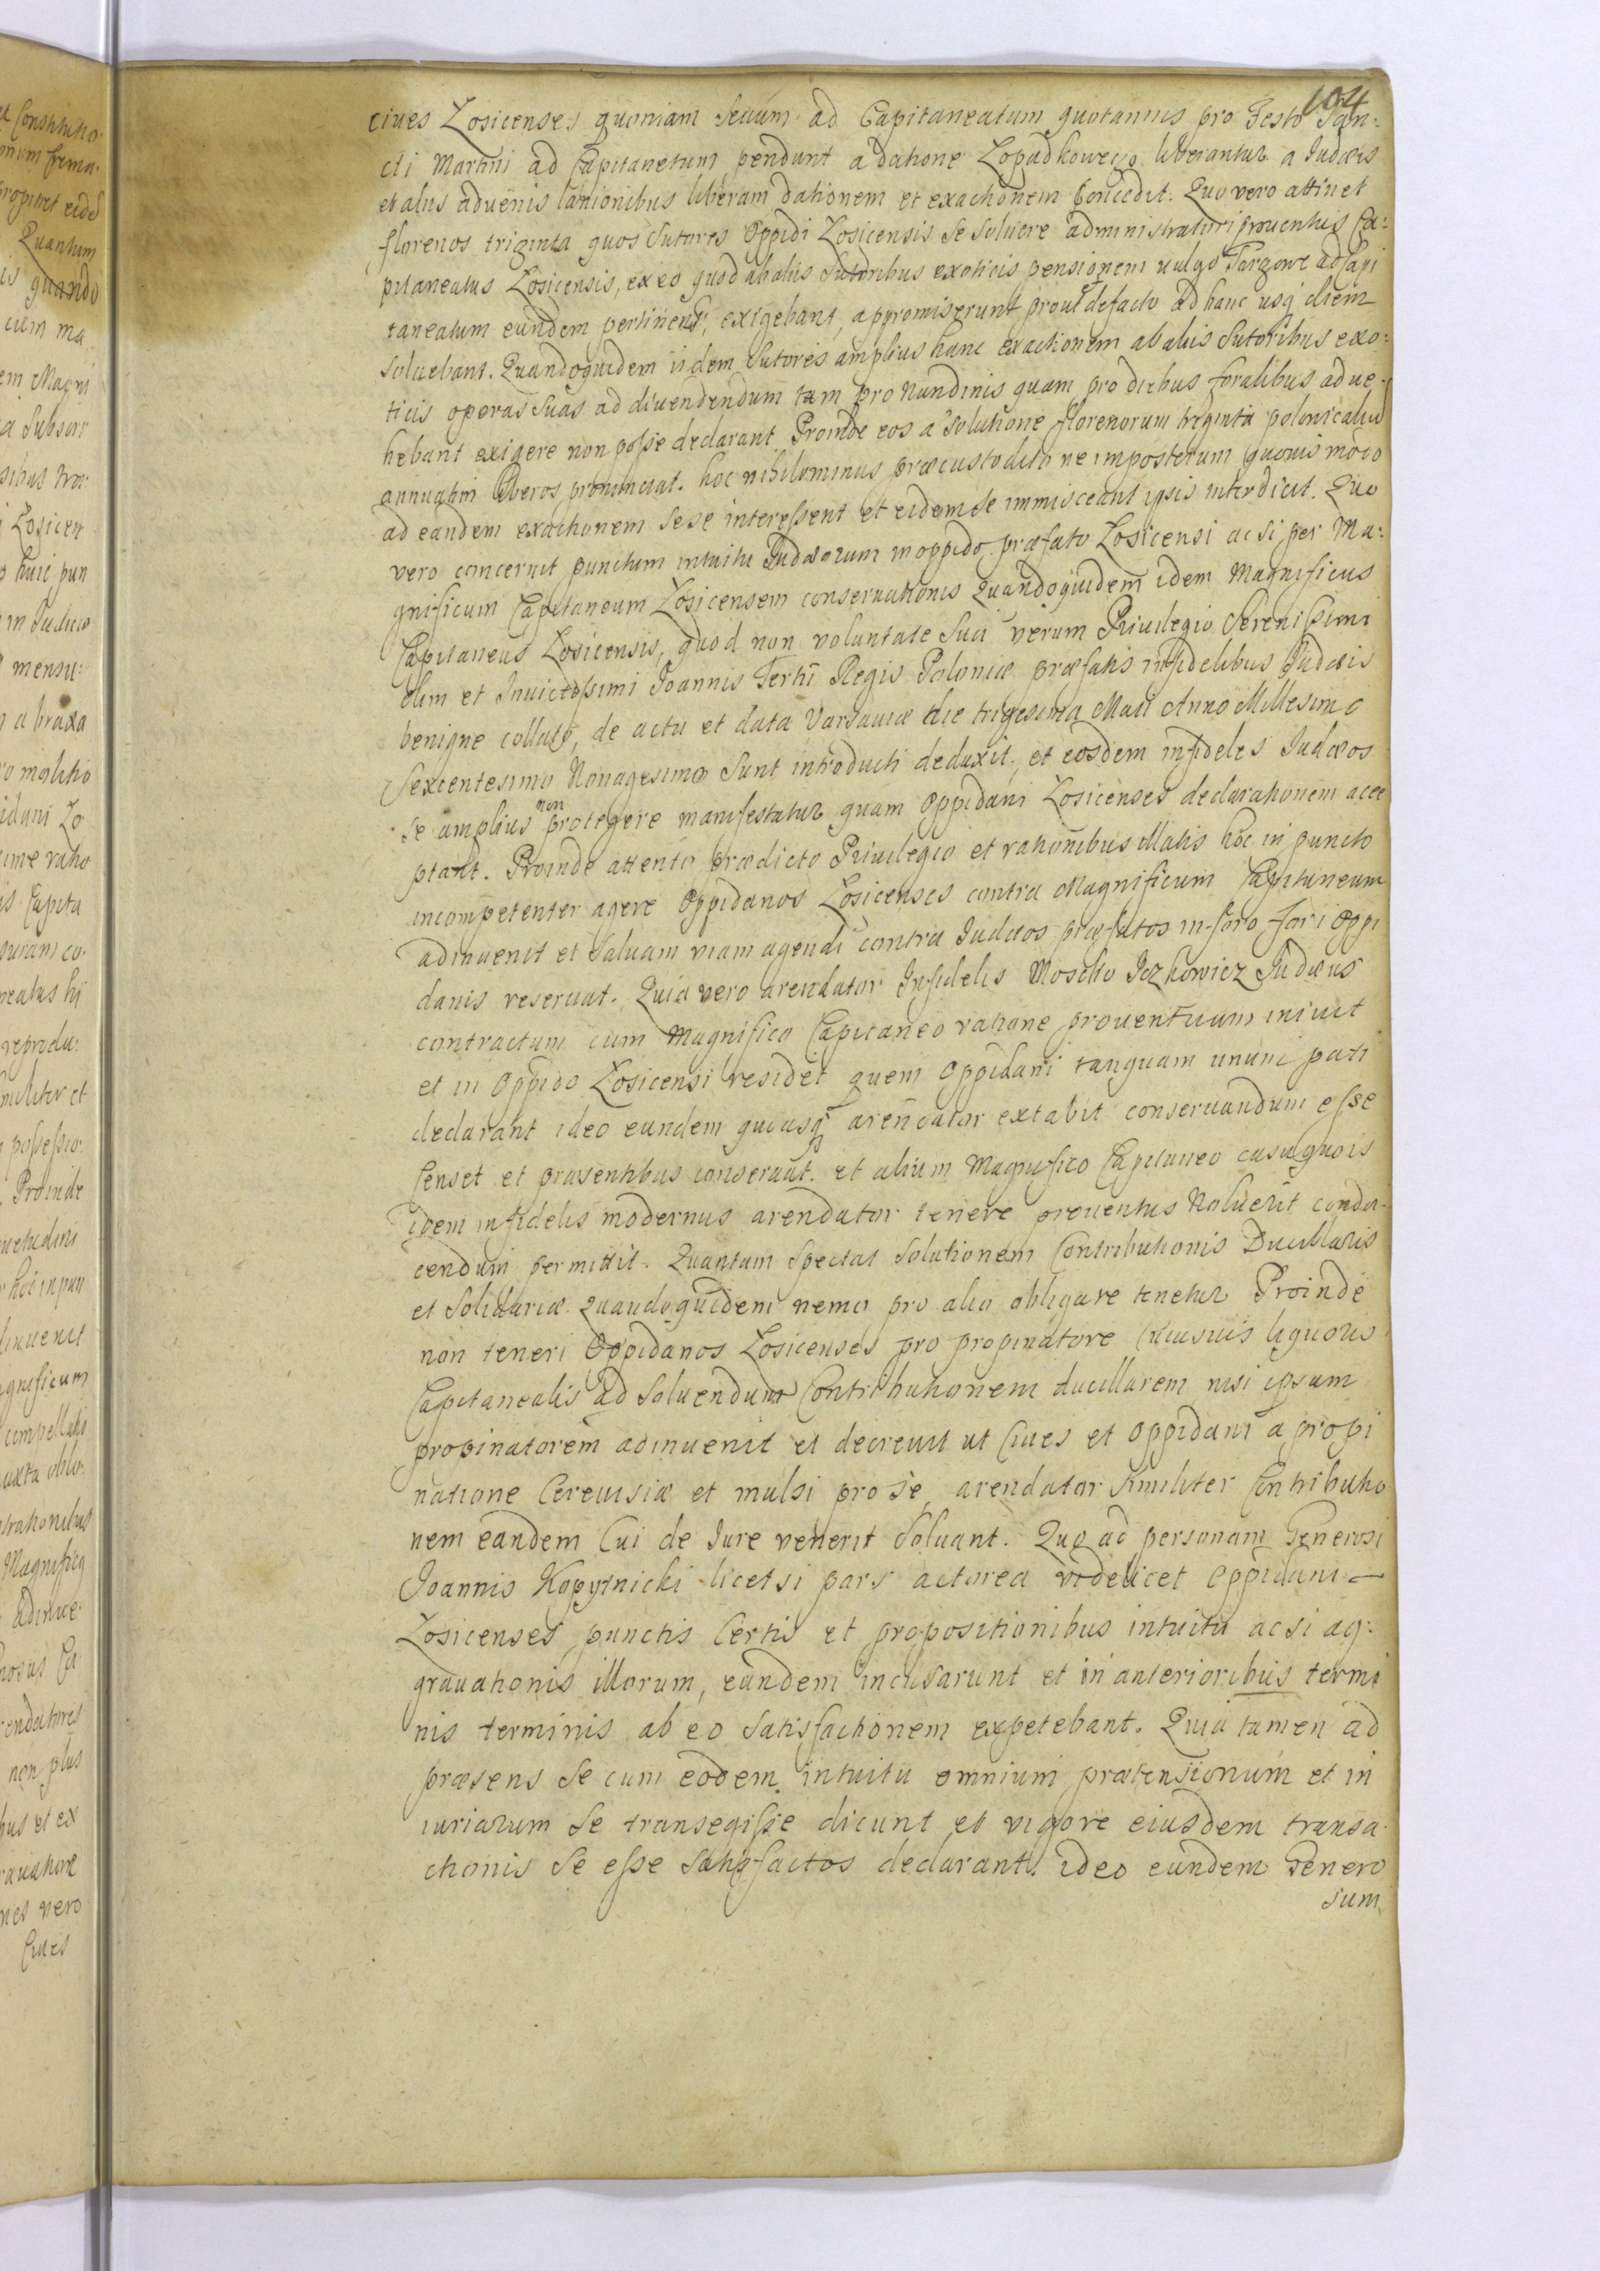 104
ciues Łosicenses quoniam Sevum ad Capitaneatum quotannis pro Festo San:
cti Martini ad Capitanetum pendunt a datione Łopadkowego liberantur a Judæis
et aliis aduenis lanionibus liberam dationem et exactionem Concedit. Quo vero attinet
florenos triginta quos Sutores Oppidi Łosicensis Se Soluere administratori prouentus Ca:
pitaneatus Łosicensis, ex eo quod ab aliis Sutoribus exoticis pensionem vulgo Targowe ad Capi
taneatum eundem pertinent, exigebant, appromiserunt prout defacto ad hanc usq diem
Soluebant. Quandoquidem iidem Sutores amplius hanc exactionem ab aliis Sutoribus exo:
ticis operas Suas ad diuendendum tam pro Nundinis quam pro diebus foralibus adue:
hebant exigere non posse declarant Proinde eos a Solutione florenorum triginta polonicaliu
annuatim liberos pronunciat. hoc nihilominus præcustodito ne imposterum quouis modo
ad eandem exactionem sese interessent et eidem se immisceant ipsis interdicit. Quo
vero concernit punctum intuitu Judæorum in oppido præfato Łosicensi ac si per Ma:
gnificum Capitaneum Łosicensem conseruationis Quandoquidem idem Magnificus
Capitaneus Łosicensis, quod non voluntate Sua verum Priuilegio Serenissimi
olim et Inuictissimi Joannis Tertii Regis Poloniæ præfatis infidelibus Judæis
benigne collato, de actu et data Varsauiæ die trigesima Maii Anno Millesimo
Sexcentesimo Nonagesimo Sunt introducti deduxit, et eosdem infideles Judæos
se amplius non protegere manifestatur quam Oppidani Łosicenses declarationem acce
ptant. Proinde attento prædicto Priuilegio et rationibus illatis hoc in puncto
incompetenter agere Oppidanos Łosicenses contra Magnificum Capitaneum
adinuenit et Saluam viam agendi contra Judæos præfatos in foro fori Oppi
danis reseruat. Quia vero arendator Infidelis Moszko Jczkowicz Judæus
contractum cum Magnifico Capitaneo ratione prouentuum iniuit
et in Oppido Łosicensi residet quem Oppidani tanquam unum pati
declarant ideo eundem quousq arendator extabit conseruandum esse
Censet et præsentibus conseruat. et alium Magnifico Capitaneo casu quo is
idem infidelis modernus arendator tenere prouentus Noluerit condu
cendum permittit. Quantum Spectat Solutionem Contributionis Ducillaris
et Solidariæ quandoquidem nemo pro alio obligare tenetur Proinde
non teneri Oppidanos Łosicenses pro propinatore Cuiusuis liquoris
Capitanealis ad Soluendum Contributionem ducillarem nisi ipsum
propinatorem adinuenit et decreuit ut Ciues et Oppidani a propi
natione Cereuisiæ et mulsi pro se, arendator Similiter Contributio
nem eandem Cui de Jure venerit Soluant. Quo ad personam Generosi
Joannis Kopytnicki licet si pars actorea videlicet Oppidani
Łosicenses punctis Certis et propositionibus intuitu ac si ag:
grauationis illorum, eundem incusarunt et in anterioribus termi
nis terminis ab eo Satisfactionem expetebant. Quia tamen ad
præsens Se cum eodem intuitu omnium prætensionum et in
iuriarum Se transegisse dicunt et vigore eiusdem transa
ctionis Se esse Satisfactos declarant. ideo eundem Genero
sum